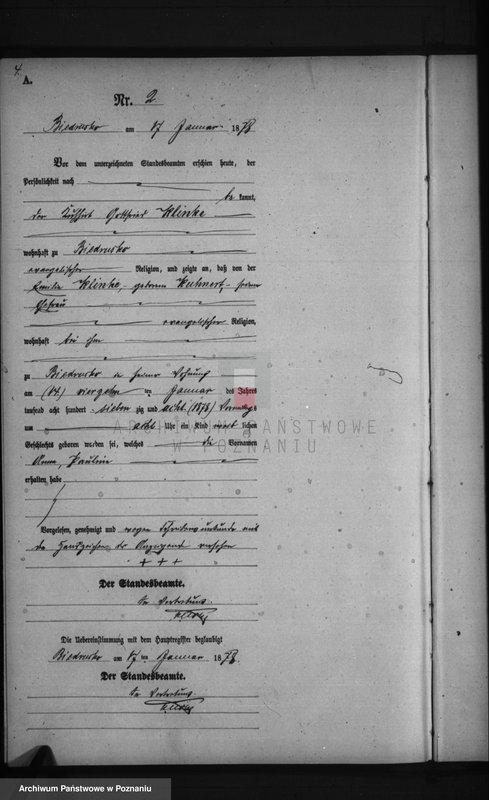 4.
A.
Nr. 2
Biedrusko am 17 Januar 1878
Vor dem unterzeichneten Standesbeamten erschien heute, der
Persönlichkeit nach
be kannt,
der Gottfried Klinke
wohnhaft zu Biedrusko
evangelischer Religion, und zeigte an, daß von der
Emilie Klinke, geborene Kuhnert, seiner
Ehefrau
evangelischer Religion,
wohnhaft bei ihm
zu Biedrusko in seiner Wohnung
am (14.) vierzehn ten Januar des Jahres
tausend acht hundert sieben zig und acht (1878) Vormittags
um acht Uhr ein Kind weib lichen
Geschlechts geboren worden sei, welches die Vornamen
Anna, Pauline
erhalten habe
Vorgelesen, genehmigt und wegen Schreibensunkunde mit
den Handzeichen der versehen
+ + +
Der Standesbeamte.
In Vertretung.
Die Uebereinstimmung mit dem Hauptregister beglaubigt
Biedrusko am 17 ten Januar 1878
Der Standesbeamte.
In Vertretung.
ARCHIWUM PAŃSTWOWE
W POZNANIU
Archiwum Państwowe w Poznaniu